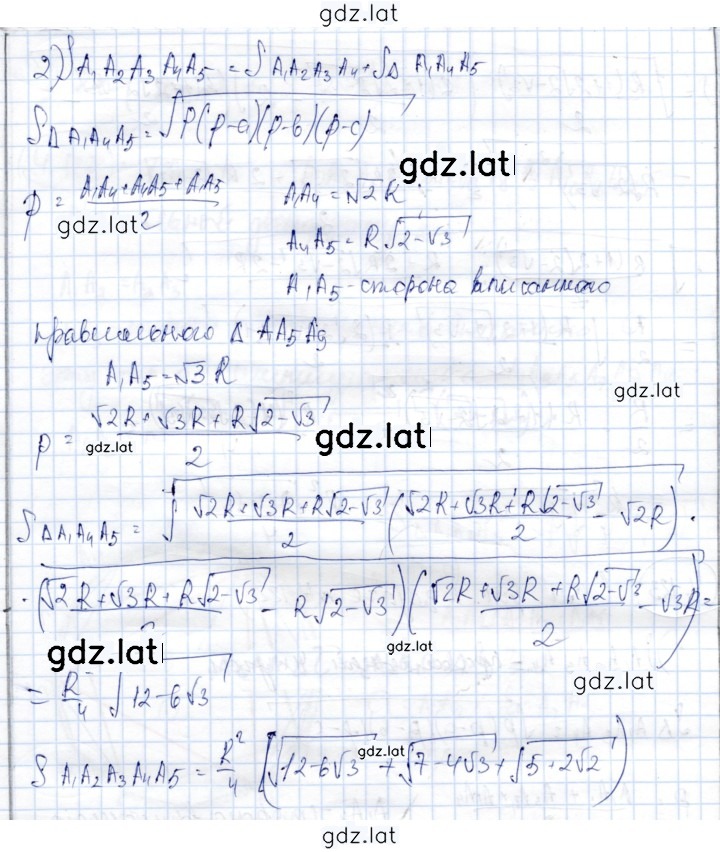 gdz.lat
2) S A₁A₂A₃A₄A₅ = S A₁A₂A₃A₄ + SΔ A₁A₄A₅
SΔA₁A₄A₅ = √(p(p-a)(p-в)(p-c))
gdz.lat
p = (A₁A₄+A₄A₅+A₁A₅)/2 A₁A₄ = √2 R
gdz.lat
A₄A₅ = R√(2-√3)
A₁A₅ - сторона вписанного
правильного Δ A₁A₅A₉
A₁A₅ = √3 R
gdz.lat
p = (√2R + √3R + R√(2-√3))/2
gdz.lat
gdz.lat
SΔA₁A₄A₅ = √((√2R+√3R+R√(2-√3))/2 ((√2R+√3R+R√(2-√3))/2 - √2R) ·
· ((√2R+√3R+R√(2-√3))/2 - R√(2-√3)) ((√2R+√3R+R√(2-√3))/2 - √3R)) =
gdz.lat
gdz.lat
gdz.lat
= R²/4 √(12-6√3)
gdz.lat
S A₁A₂A₃A₄A₅ = R²/4 (√(12-6√3) + √(7-4√3) + √(5+2√2))
gdz.lat